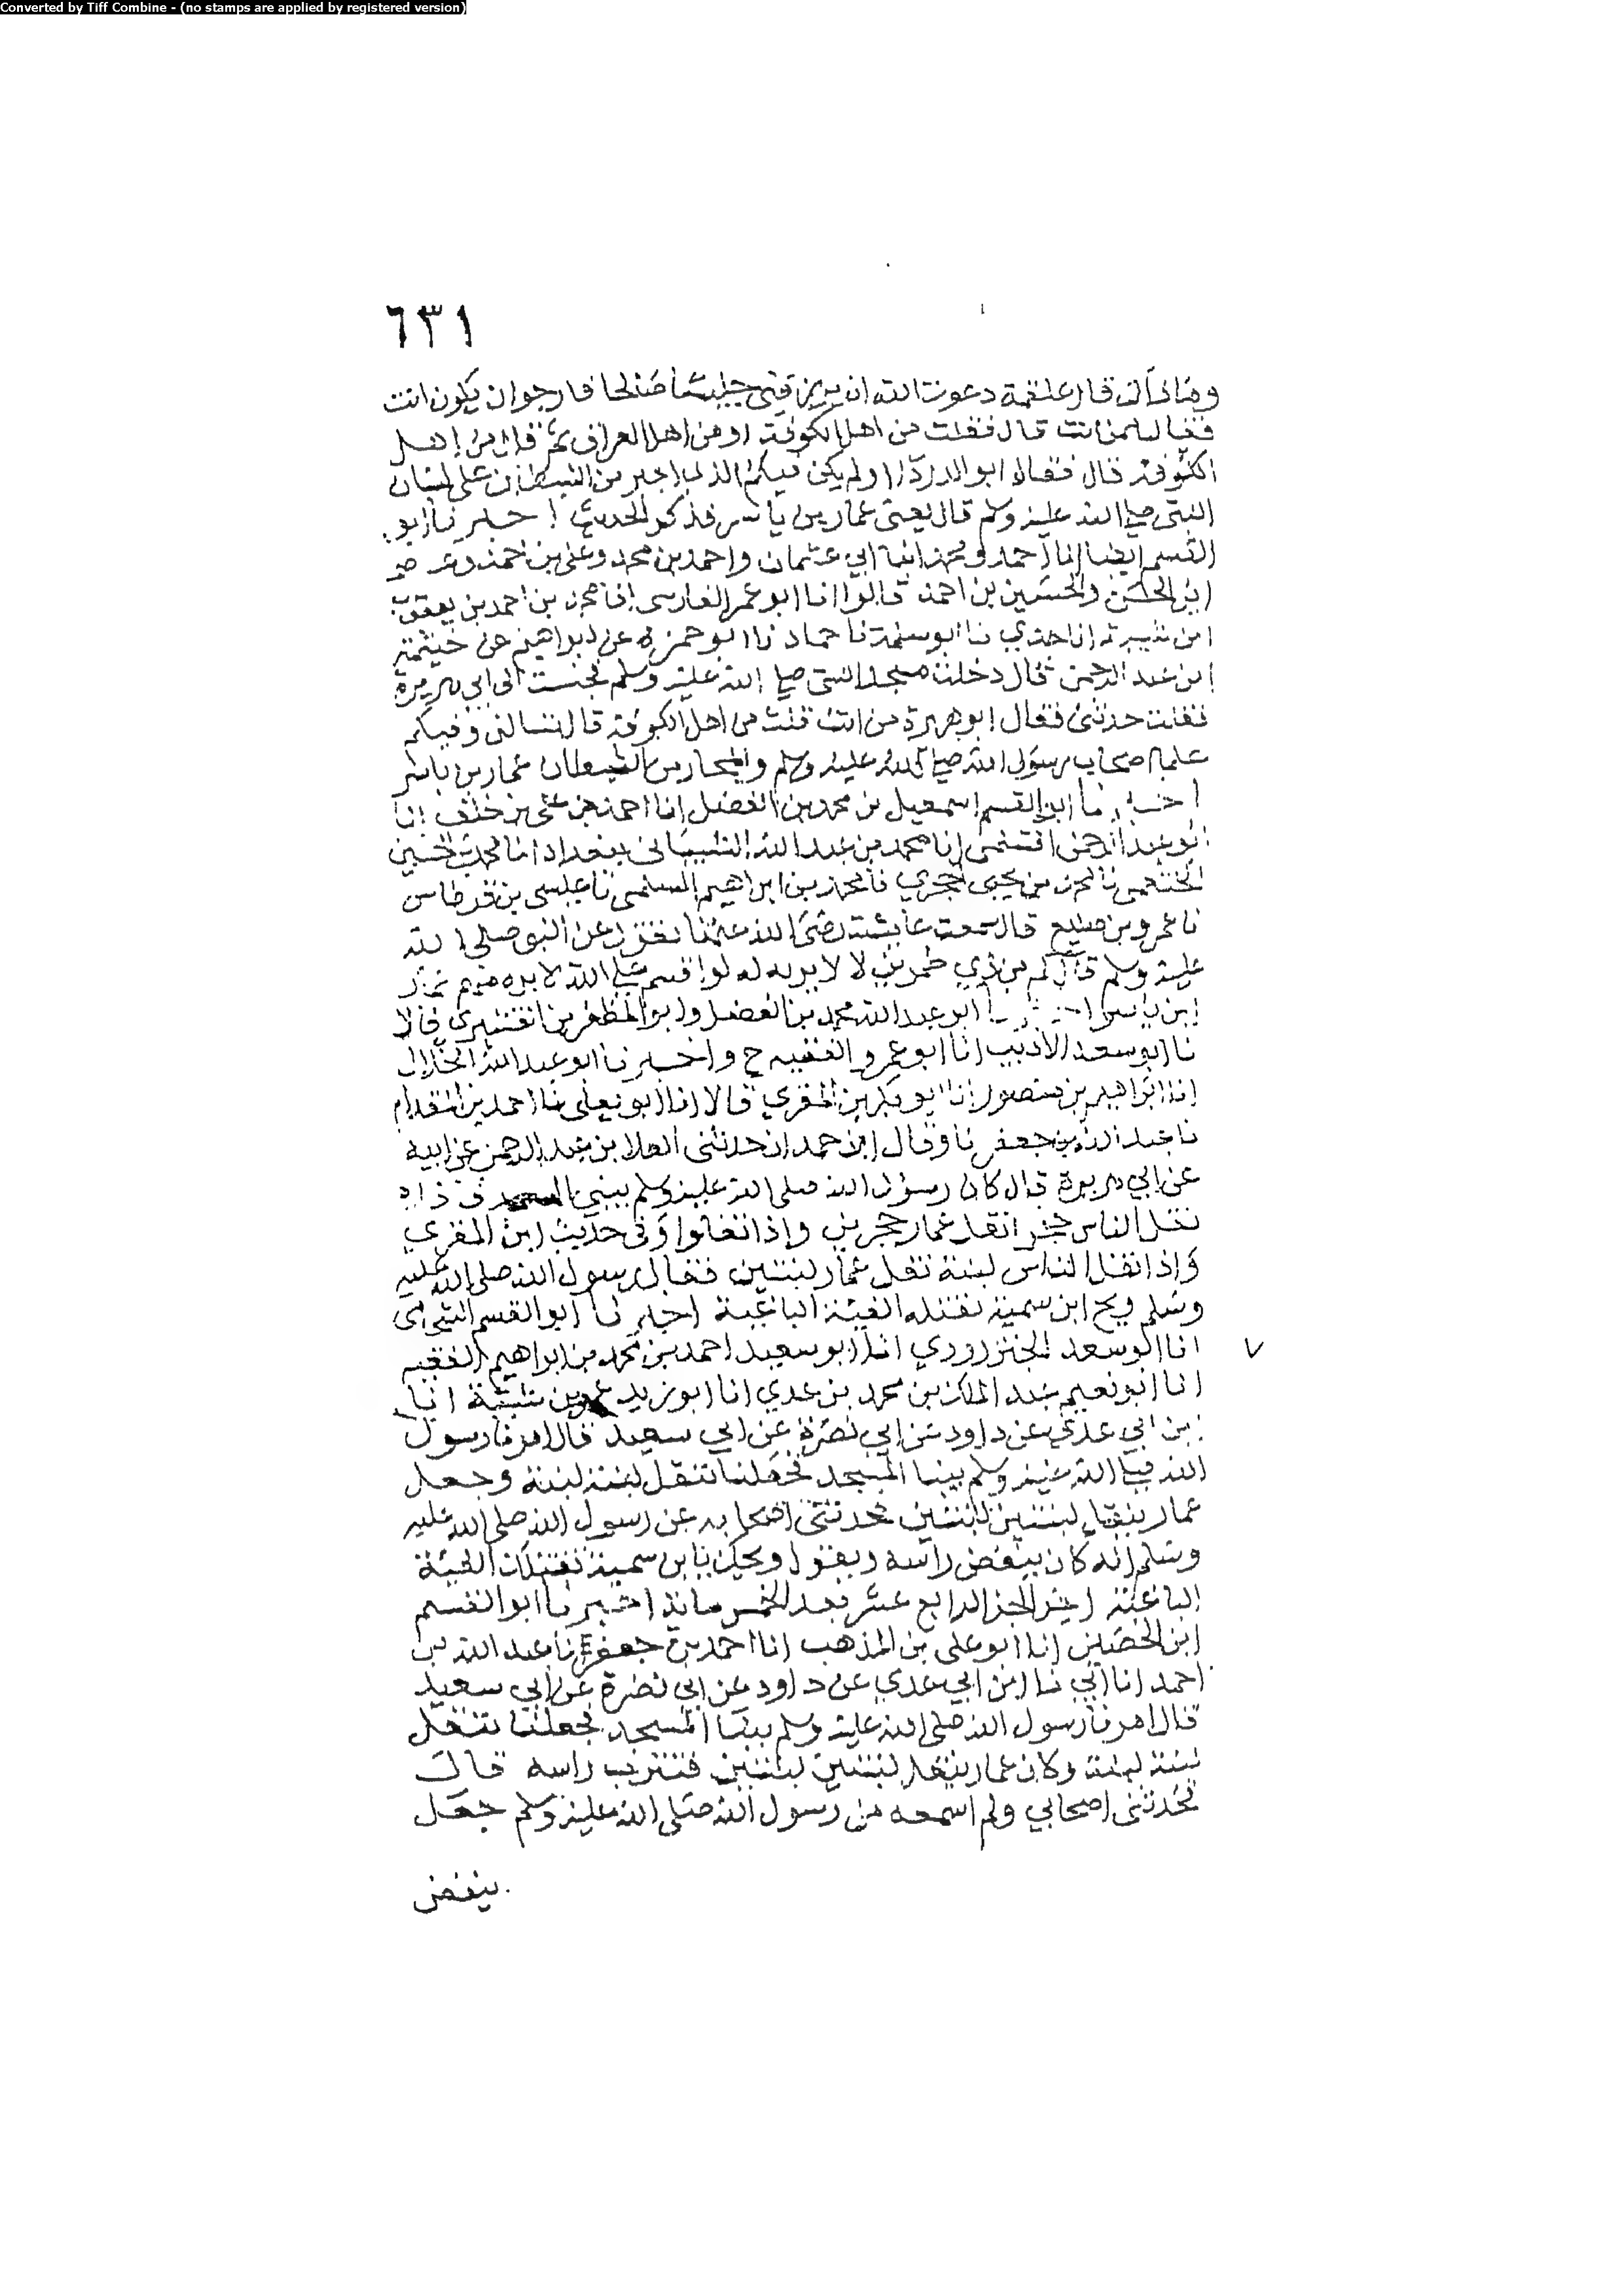 Converted by Tiff Combine - (no stamps are applied by registered version)
٦٣١
وماذاك قال علقمة دعوت الله ان يرزقنى جليسا صالحا فارجوا ان يكون انت
فقال ممن انت قال فقلت من اهل الكوفة او من اهل العراق ثم من اهل
الكوفة قال فقال ابو الدرداء اولم يكن فيكم الذى اجير من الشيطان على لسان
النبى صلى الله عليه وسلم قال يعنى عمار بن ياسر فذكر الحديث اخبرنا ابو
القسم ايضا انا احمد ومحمد ابنا ابي عثمان واحمد بن محمد وعلى بن احمد
ابن الحسن والحسين بن احمد قالوا انا ابو عمر الفارسى انا محمد بن احمد بن يعقوب
ابن شيبة انا جدي نا ابو سلمة نا حماد نا ابو حمزة عن ابراهيم عن خيثمة
ابن عبد الرحمن قال دخلت مسجد النبى صلى الله عليه وسلم فجلست الى ابي هريرة
فقلت حدثنى فقال ابو هريرة من انت قلت من اهل الكوفة قال تسالنى وفيكم
علما اصحاب رسول الله صلى الله عليه وسلم والمجار من الشيطان عمار بن ياسر
اخبرنا ابو القسم اسمعيل بن محمد بن الفضل انا احمد بن على بن خلف انا
ابو عبد الرحمن السلمى انا محمد بن عبد الله الشيبانى ببغداد انا محمد بن الحسين
الخثعمى نا محمد بن يحيى الحجري نا محمد بن ابراهيم السلمى نا عيسى بن قرطاس
نا عمرو بن صليع قال سمعت عايشة رضى الله عنها تقول عن النبى صلى الله
عليه وسلم قال كم من ذي طمرين لا لا يوبه له لو اقسم على الله لابره منهم عمار
ابن ياسر اخبرنا ابو عبد الله محمد بن الفضل وابو المظفر بن القشيري قالا
نا ابو سعد الاديب انا ابو عمرو الفقيه ح واخبرنا ابو عبد الله الخلال
انا ابراهيم بن منصور انا ابو بكر بن المقري قالا انا ابو يعلى نا احمد بن المقدام
نا عبد الله بن جعفر نا وقال ابن حمدان حدثنى العلا بن عبد الرحمن عن ابيه
عن ابي هريرة قال كان رسول الله صلى الله عليه وسلم يبنى المسجد فاذا
نقل الناس حجرا نقل عمار حجرين واذا نقلوا وفى حديث ابن المقري
واذا نقل الناس لبنة نقل عمار لبنتين فقال رسول الله صلى الله عليه
وسلم ويح ابن سمية تقتله الفئة الباغية اخبرنا ابو القسم الشحامى
انا ابو سعد الجنزرودي انا ابو سعيد احمد بن محمد بن ابراهيم الفقيه
انا ابو نعيم عبد الملك بن محمد بن عدي انا ابو زيد عمر بن شبة انا
ابن ابي عدي عن داود عن ابي نضرة عن ابي سعيد قال امرنا رسول
الله صلى الله عليه وسلم ببنا المسجد فجعلنا ننقل لبنة لبنة وجعل
عمار ينقل لبنتين لبنتين فحدثنى اصحابه عن رسول الله صلى الله عليه
وسلم انه كان ينفض راسه ويقول ويحك يا ابن سمية تقتلك الفئة
الباغية اخر الجز الرابع عشر بعد الخمس مائة اخبرنا ابو القسم
ابن الحصين انا ابو على بن المذهب انا احمد بن جعفر نا عبد الله بن
احمد انا ابي نا ابن ابي عدي عن داود عن ابي نضرة عن ابي سعيد
قال امرنا رسول الله صلى الله عليه وسلم ببنا المسجد فجعلنا ننقل
لبنة لبنة وكان عمار ينقل لبنتين لبنتين فتترب راسه قال
فحدثنى اصحابي ولم اسمعه من رسول الله صلى الله عليه وسلم جعل
ينفض